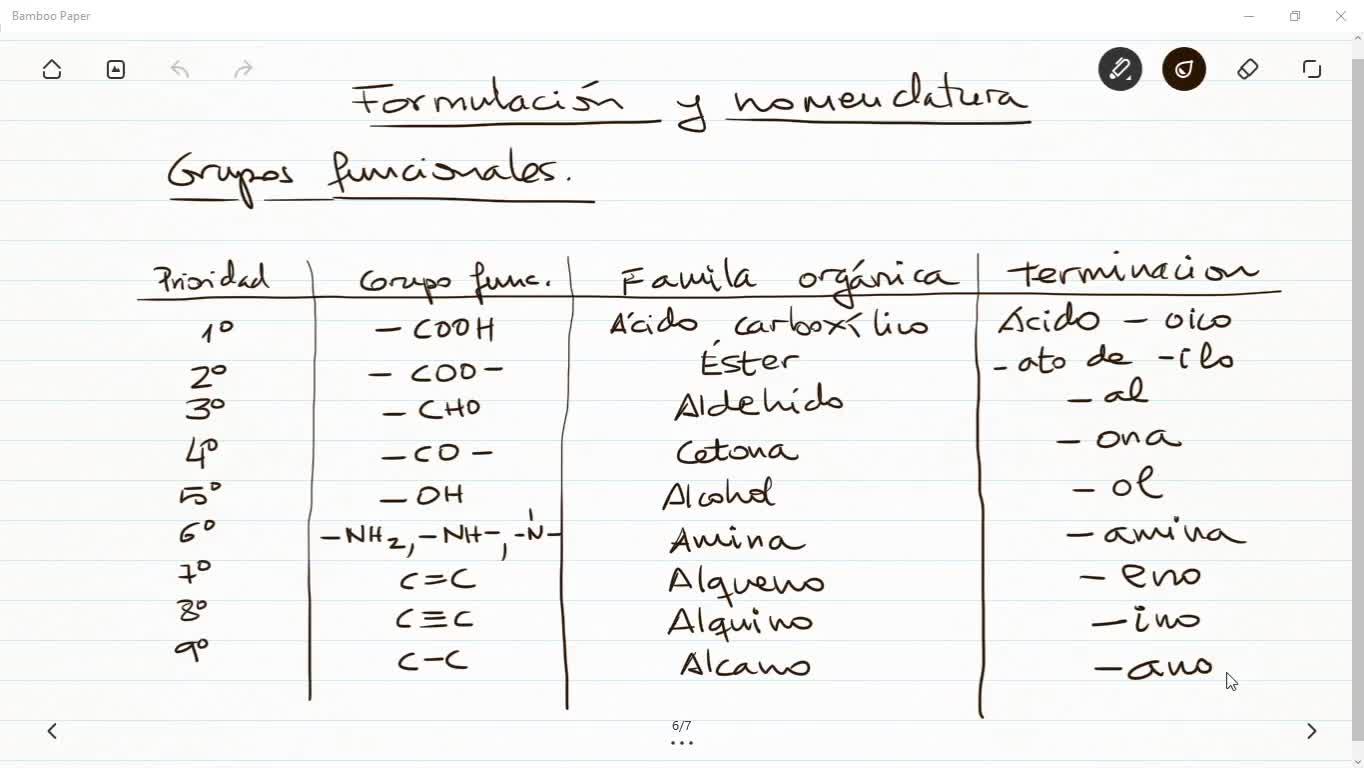 Bamboo Paper
Formulación y nomenclatura
Grupos funcionales.
Prioridad Grupo func. Famila orgánica terminacion
1º - COOH Ácido carboxílico Ácido - oico
2º - COO - Éster - ato de - ilo
3º - CHO Aldehido - al
4º - CO - Cetona - ona
5º - OH Alcohol - ol
6º - NH2, - NH -, - N - Amina - amina
7º C=C Alqueno - eno
8º C≡C Alquino - ino
9º C-C Alcano - ano
6/7